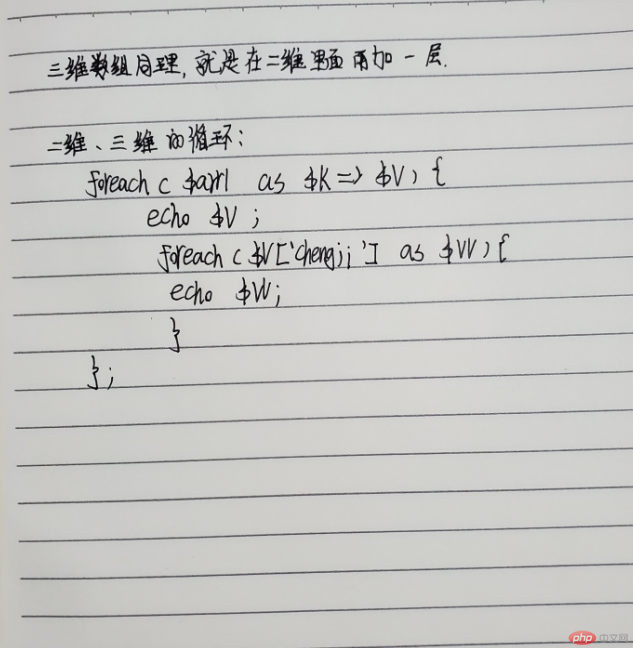 三维数组同理，就是在二维里面再加一层.
二维、三维的循环：
foreach ( $arr1 as $k => $v ) {
echo $v ;
foreach ( $v['chengji'] as $vv ) {
echo $vv;
}
};
php 中文网